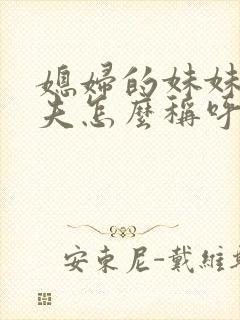 媳婦的妹妹
夫怎麼稱呼
安東尼-戴維斯